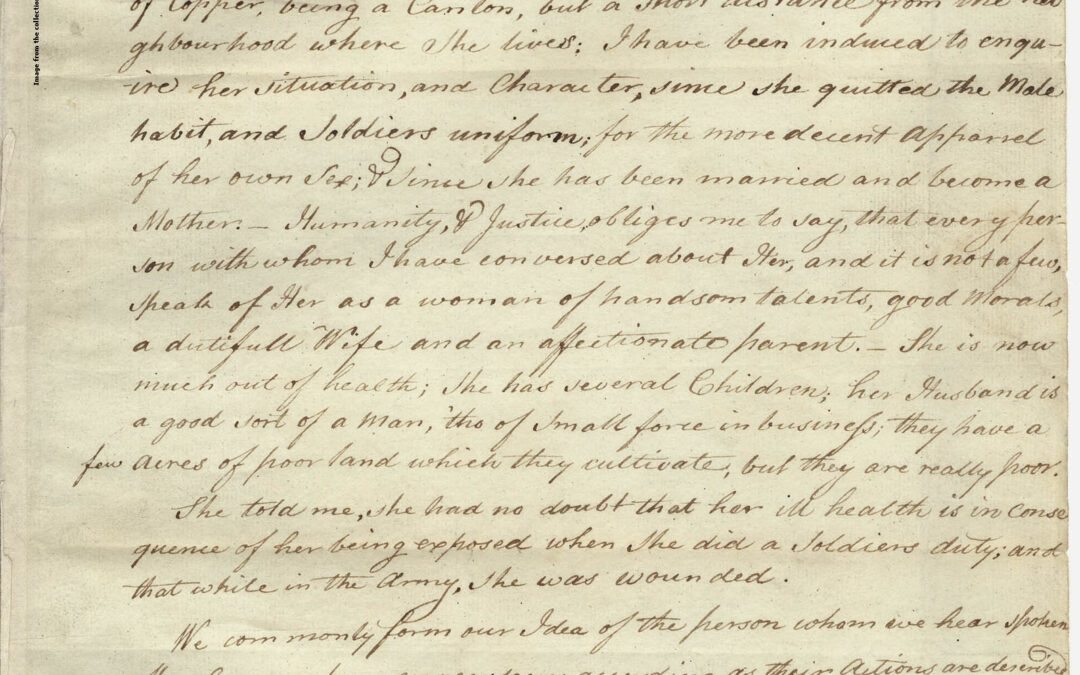 Image from the collection
of Copper, being a Canton, but a short distance from the nei
ghbourhood where She lives; I have been induced to enqu-
ire her situation, and Character, since she quitted the Male
habit, and Soldiers uniform; for the more decent apparrel
of her own Sex; & Since she has been married and become a
Mother. – Humanity, & Justice obliges me to say, that every per-
son with whom I have conversed about Her, and it is not a few,
speak of Her as a woman of handsom talents, good Morals,
a dutifull Wife and an affectionate parent. – She is now
much out of health; She has several Children; her Husband is
a good sort of a man, 'tho of small force in business; they have a
few acres of poor land which they cultivate, but they are really poor.
She told me, she had no doubt that her ill health is in conse
quence of her being exposed when She did a Soldiers duty; and
that while in the Army, She was wounded.
We commonly form our Idea of the person whom we hear spoken
as their Actions are described